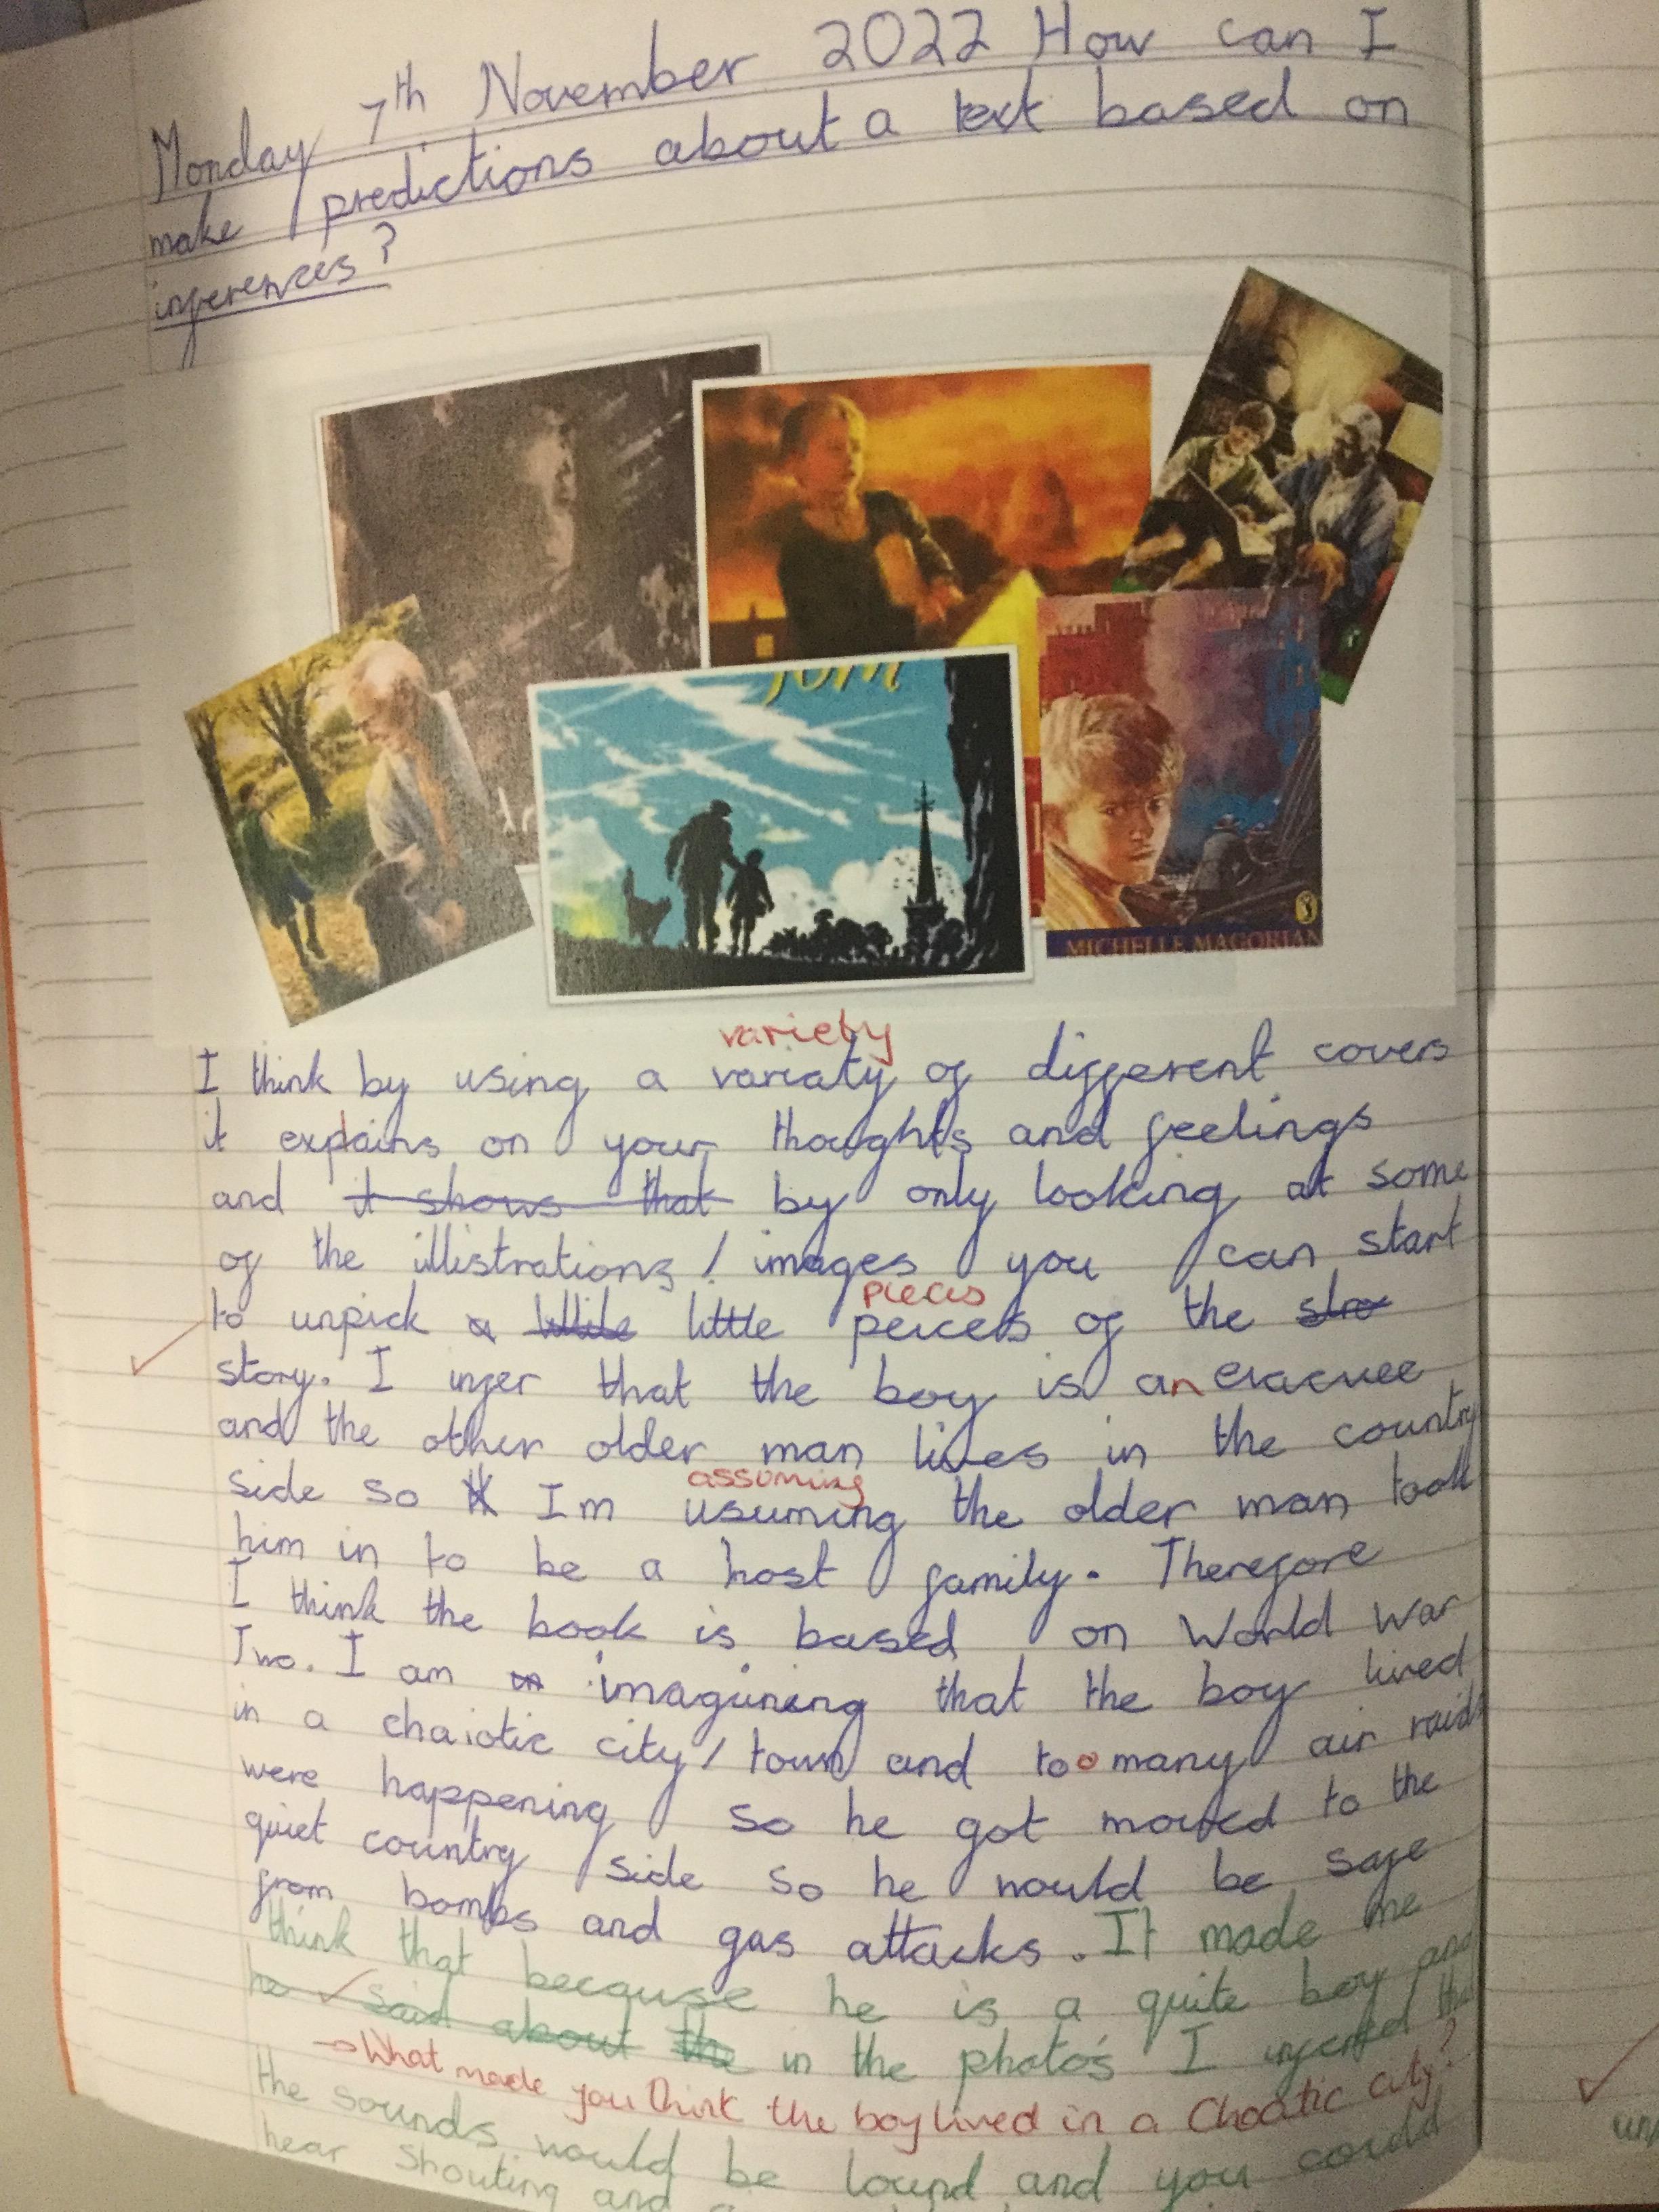 Monday 7th November 2022 How can I
make predictions about a text based on
inferences?
Tom
MICHELLE MAGORIAN
variety
I think by using a variaty of different covers
it explains on your thoughts and feelings
and it shows that by only looking at some
of the illistrations / images you can start
pieces
to unpick a little little peices of the sto
story. I infer that the boy is an evacuee
and the other older man lives in the country
assuming
side so Im usuming the older man took
him in to be a host family. Therefore
I think the book is based on World War
Two. I am imagining that the boy lived
in a chaiotic city / town and too many air raids
were happening so he got moved to the
quiet country side so he would be safe
from bombs and gas attacks. It made me
think that because he is a quite boy and
he said about the in the photo's I infered that
→What made you think the boy lived in a Chaotic city?
the sounds would be lound and you could
hear Shouting and